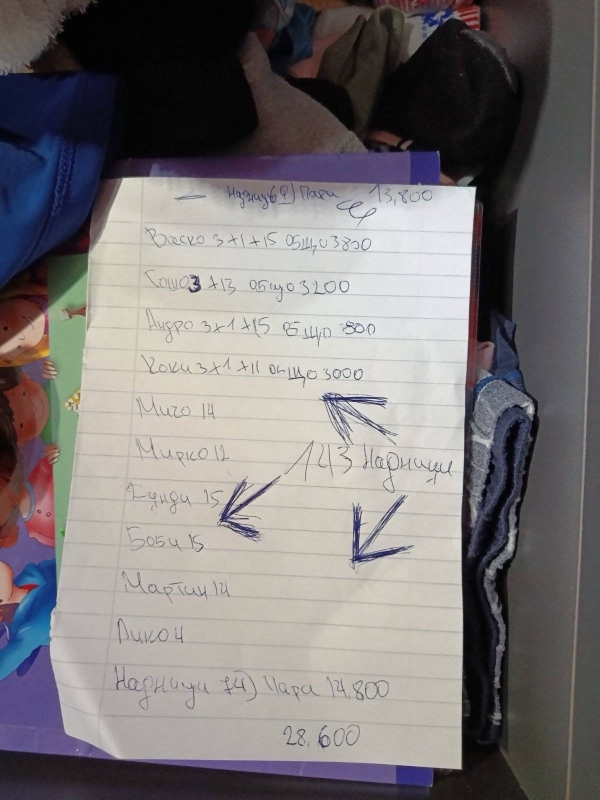 Надници 69) Пари 13,800
Васко 3+1+15 общо 3800
Сашо 3+13 общо 3200
Андро 3+1+15 общо 800
Коки 3+1+11 общо 3000
Мичо 14
Мирко 12
143 Надници
Бунди 15
Боби 15
Мартин 14
Дико 4
Надници 74) Пари 14,800
28,600